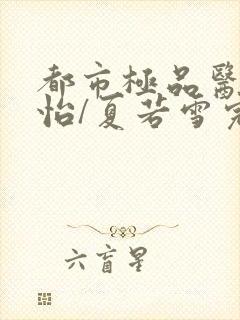 都市極品醫
怡/夏若雪完
六盲星